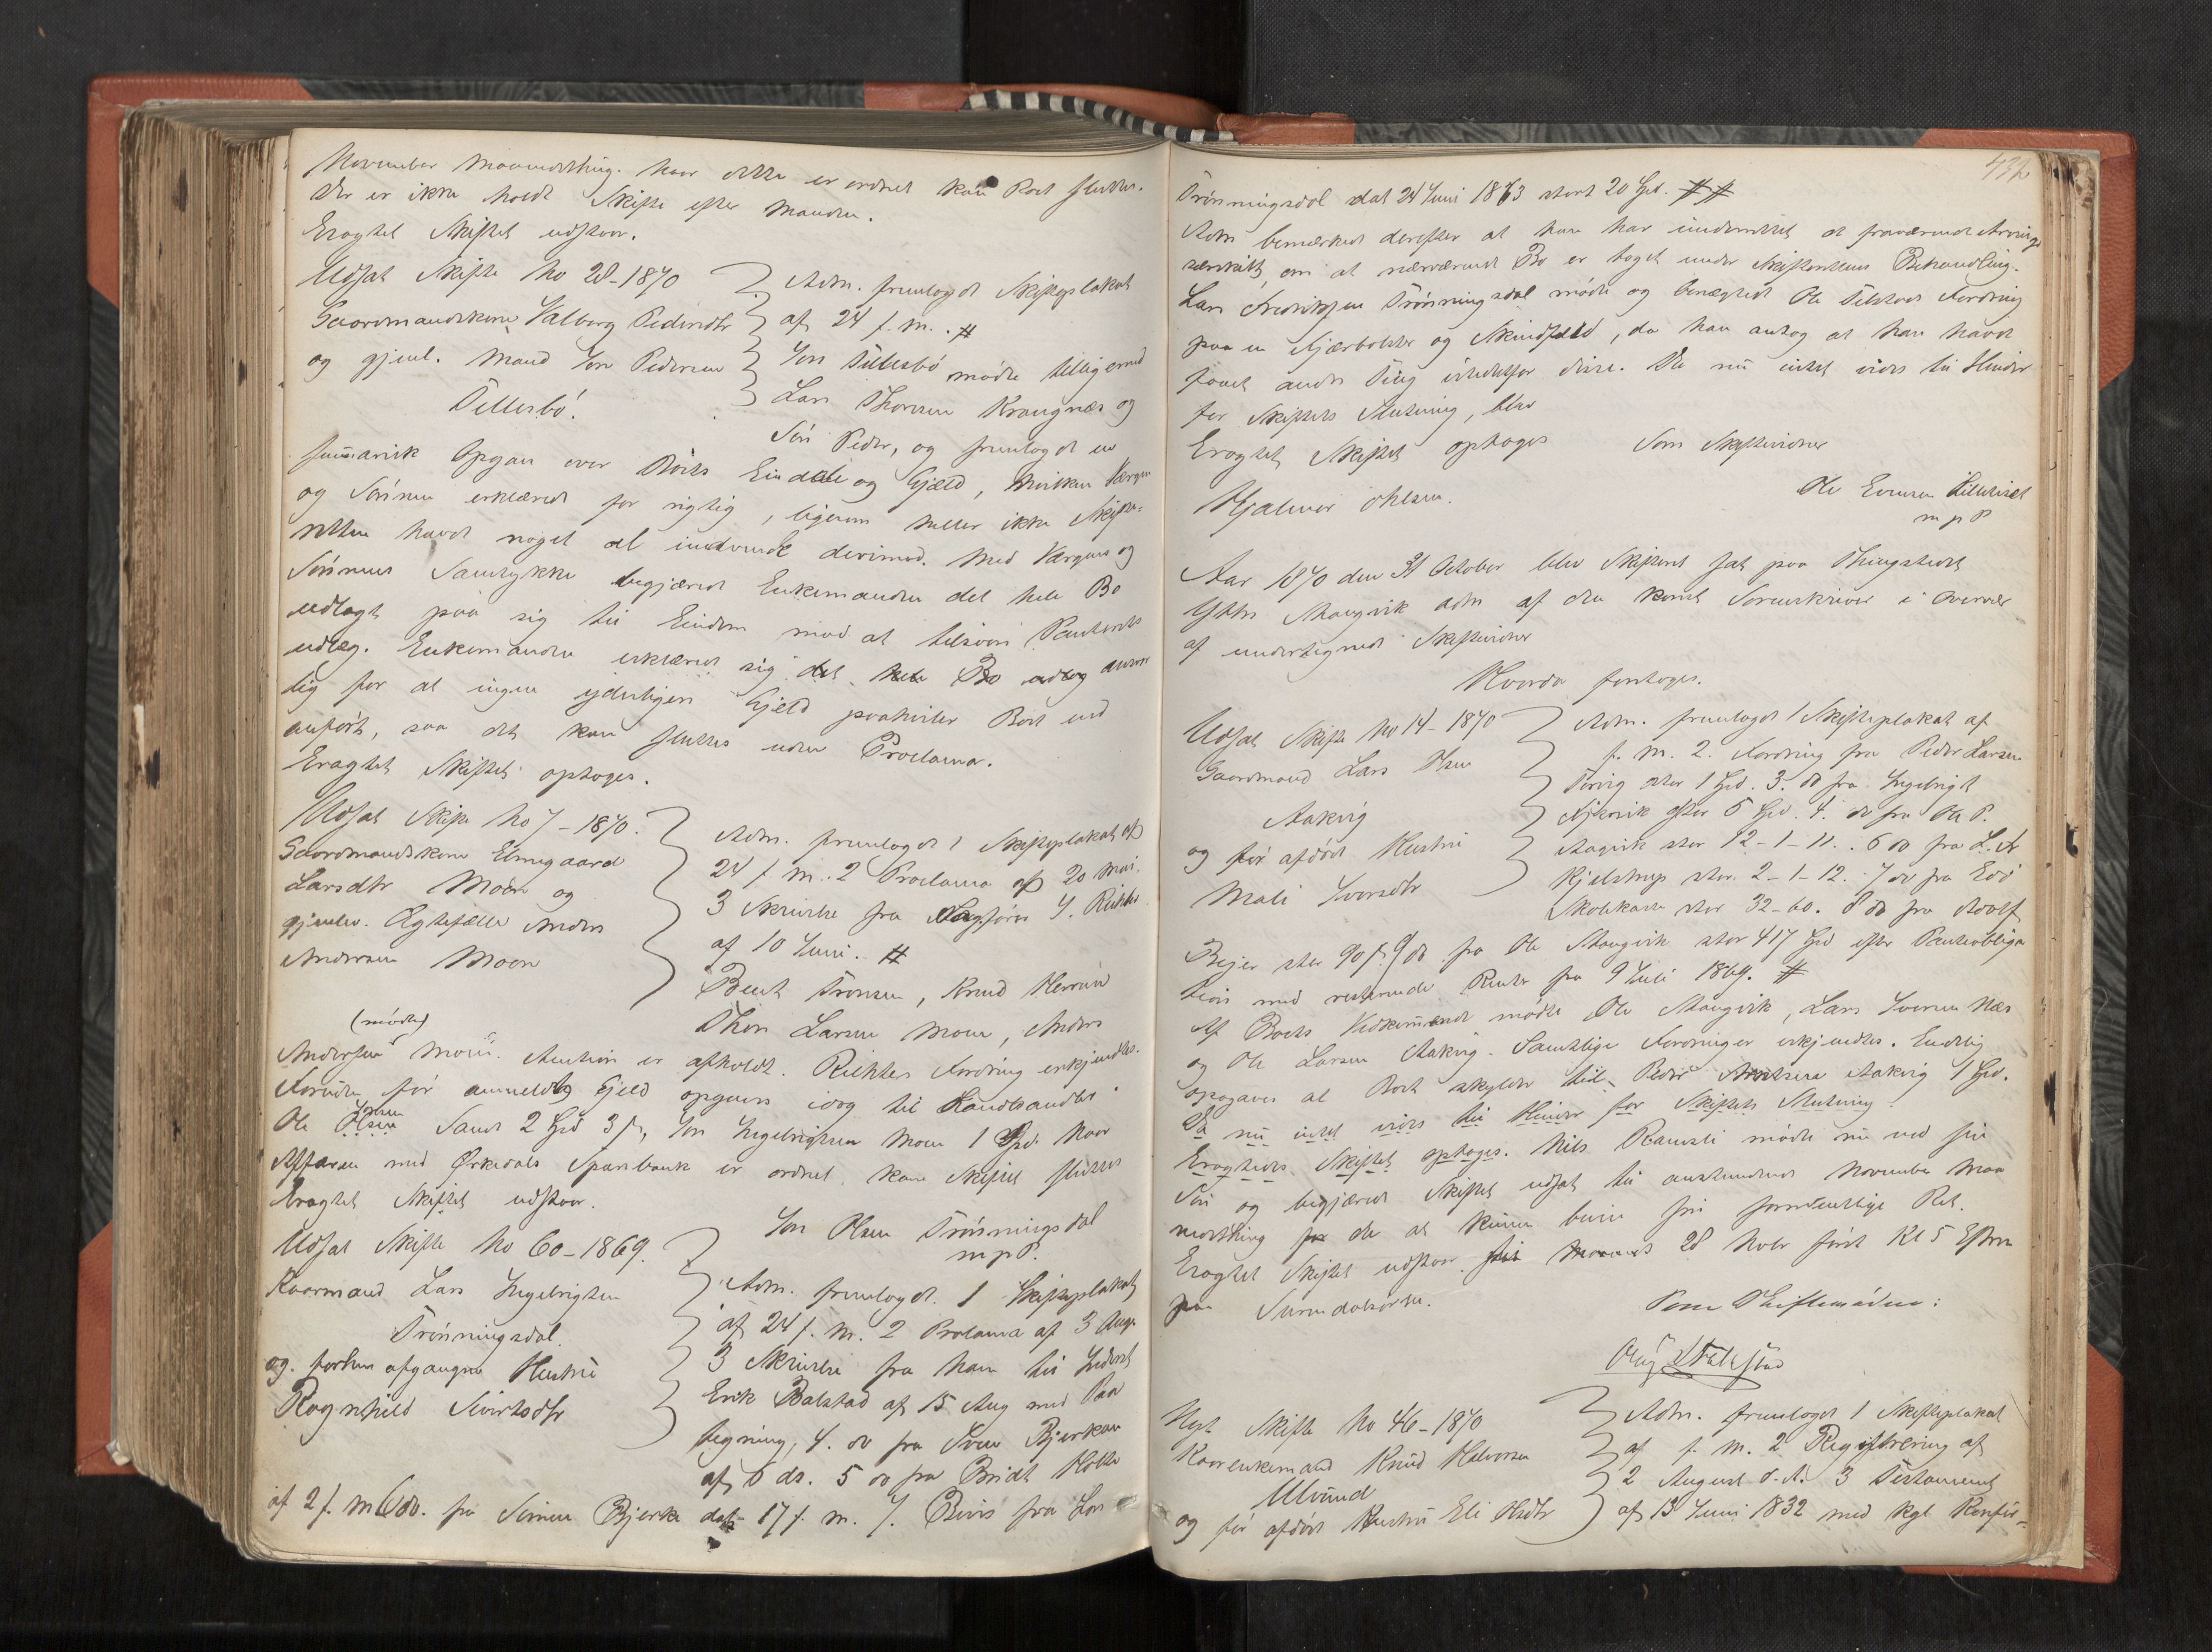 November Maanedsthing. Naar dette er ordnet kan Boet sluttes.
Der er ikke holdt Skifte efter Manden.
Eragtet Skiftet udstaar.
Udsat Skifte No 28-1870
Gaardmandskone Valborg Pedersdtr
og gjenl. Mand Jon Pedersen
Tellesbö.
Adm. fremlagde Skifteplakat
af 24 f. M. #
Jon Tellesbö mödte tilligemed
Lars Thoresen Krangnæs og
Sön Peder, og fremlagde en
summarisk Opgave over Boets Eiendele og Gjæld, hvilken Værgen
og Sönnen erklærede for rigtig, ligesom heller ikke Skifte-
retten havde noget at indvende derimod. Med Værgens og
Sönnens Samtykke begjærede Enkemanden det hele Bo
udlagt paa sig til Eiendom mod at tilsvare
udlæg. Enkemanden erklæred sig det hele Bo udlag
lig for at ingen yderligere Gjæld paahviler Boet end
anfört, saa det kan sluttes uden Proclama.
Eragtet Skiftet optages.
Udsat Skifte No 7-1870.
Gaardmandskone Elingaard
Larsdtr Moen og
gjenlev. Ægtefælle Anders
Andersen Moen
Adm. fremlagde 1 Skifteplakat af
24 f. M. 2 Proclama af 20 Mai.
3 Skrivelse fra Sagförer J. Richter
af 10 Juni. #
Bent Tronsen, Knud
Thore Larsen Moen, Anders
(mödte)
Andersen Moen. Auction er afholdt. Richters Fordring erkjendtes.
Foruden för anmeldt Gjæld opgaves idag til Landhandler
Ole Olsen Sande 2 Spd 3 ß, Jon Ingebrigtsen Moen 1 Spd. Naar
Affæren med Ørkedals Sparebank er ordnet kan Skiftet sluttes
Eragtet Skiftet udstaar.
Jon Olsen Trönningsdal
m p P.
Udsat Skifte No 60-1869.
Kaarmand Lars Ingebrigtsen
Trönningsdal
og forhen afgangne Hustru
Ragnhild Sivertsdtr
Adm. fremlagde 1 Skifteplakat
af 24 f. M. 2 Proclama af 3 Aug.
3 Skrivelse fra ham til
Erik Bolstad af 15 Aug med Paa
tegning, 4. do fra Svein Bjerkan
af 6 ds. 5 do fra Bendt Holte
af 2 f. M. 6 do. fra Simen Bjerke dat 17 f. M. 7. Bevis fra Lars
Trönningsdal dat 24 Juni 1863 stort 20 Spd. ##
Adm bemærkede derefter at han har underrettet de fraværende Arvinge
særskilt om at nærværende Bo er taget under Skifterettens Behandling.
Lars Fredriksen Trönningsdal mödte og benægtede Ole Tilstads Fordring
paa en Fjærbolster og Skindfeld, da han antog at han havde
faaet andre Ting istedetfor disse. Da nu intet vides til Hinder
for Skiftets Slutning, blev
Eragtet Skiftet optages
Som Skiftevidner
Hjalmar Ohlsen.
Ole Evensen
m p P
Aar 1870 den 31 October blev Skifteret sat paa Thingstedet
Ytter Stangvik adm af den const Sorenskriver i Overvær
af undertegnede Skiftevidner
Hvorda foretages.
Udsat Skifte No 14-1870
Gaardmand Lars Olsen
Aakvig
og för afdöd Hustru
Mali Iversdtr
Adm. fremlagde 1 Skifteplakat af
f. M. 2. Fordring fra Peder Larsen
stor 1 Spd. 3. do fra Ingebrigt
stor 5 Spd. 4. do fra Ole P.
stor 12-1-11. 6 do fra L. A
Kjelstrup stor 2-1-12. 7 do fra
stor 32-60. 8 do fra Adolf
Beyer stor 90 ß. 9 do fra Ole Stangvik stor 417 Spd efter Panteobliga
tion med resterende Renter fra 9 Juli 1869. #
Af Boets Vedkommende mödte Ole Stangvik, Lars Iversen Næs
og Ole Larsen Aakvig. Samtlige Fordringer erkjendtes. Endelig
opgaves at Boet skylder til Peder Aakvig 1 Spd.
Da nu intet vides til Hinder for Skiftets Slutning
Eragtedes Skiftet optages. Nils Ranæsli mödte nu ved sin
Sön og begjærede Skiftet udsat til anstundende November Maa
nedsthing for da at kunne bevise sin formentlige Ret.
Eragtet Skiftet udstaar til Mandag 28 Nobr förstk Kl 5 Efterm
paa Surendalsören.
Som Skiftevidner:
Nyt Skifte No 46-1870
Kaarenkemand Knud Halvorsen
Ulvund
og för afdöde Hustru Eli Olsdtr
Adm. fremlagde 1 Skifteplakat
af f. M. 2 Registrering af
2 August d. A. 3 Testament
af 13 Juni 1832 med kgl Konfir-